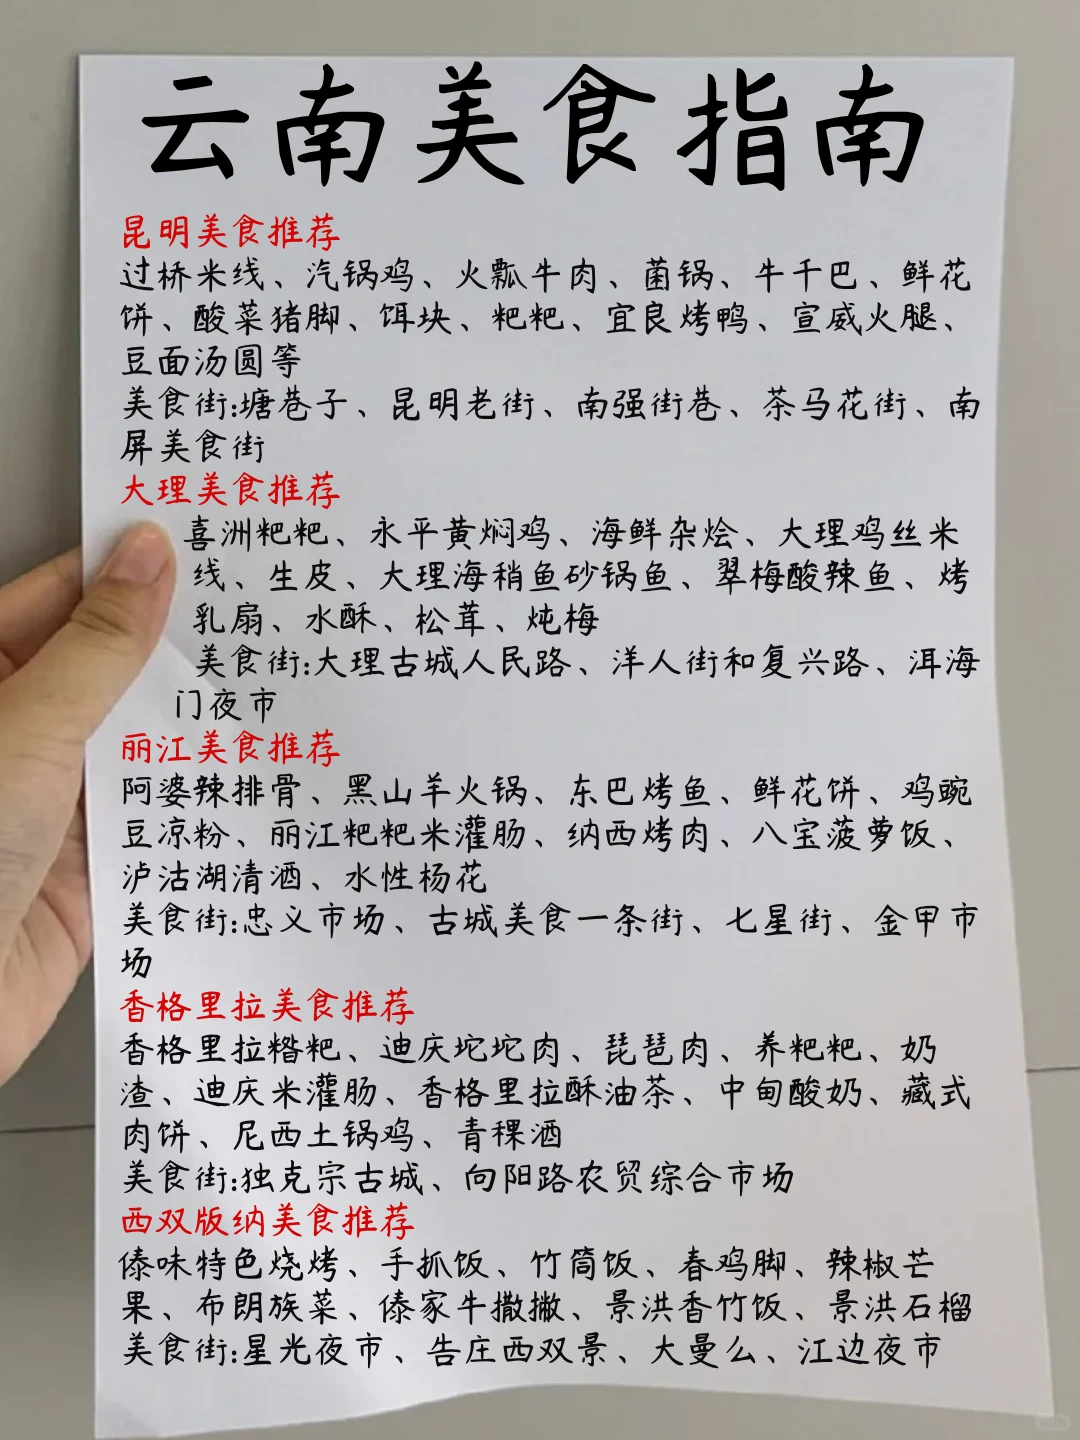 云南美食指南
昆明美食推荐
过桥米线、汽锅鸡、火瓢牛肉、菌锅、牛干巴、鲜花
饼、酸菜猪脚、饵块、粑粑、宜良烤鸭、宣威火腿、
豆面汤圆等
美食街:塘巷子、昆明老街、南强街巷、茶马花街、南
屏美食街
大理美食推荐
喜洲粑粑、永平黄焖鸡、海鲜杂烩、大理鸡丝米
线、生皮、大理海稍鱼砂锅鱼、翠梅酸辣鱼、烤
乳扇、水酥、松茸、炖梅
美食街:大理古城人民路、洋人街和复兴路、洱海
门夜市
丽江美食推荐
阿婆辣排骨、黑山羊火锅、东巴烤鱼、鲜花饼、鸡豌
豆凉粉、丽江粑粑米灌肠、纳西烤肉、八宝菠萝饭、
泸沽湖清酒、水性杨花
美食街:忠义市场、古城美食一条街、七星街、金甲市
场
香格里拉美食推荐
香格里拉糌粑、迪庆坨坨肉、琵琶肉、养粑粑、奶
渣、迪庆米灌肠、香格里拉酥油茶、中甸酸奶、藏式
肉饼、尼西土锅鸡、青稞酒
美食街:独克宗古城、向阳路农贸综合市场
西双版纳美食推荐
傣味特色烧烤、手抓饭、竹筒饭、春鸡脚、辣椒芒
果、布朗族菜、傣家牛撒撇、景洪香竹饭、景洪石榴
美食街:星光夜市、告庄西双景、大曼么、江边夜市